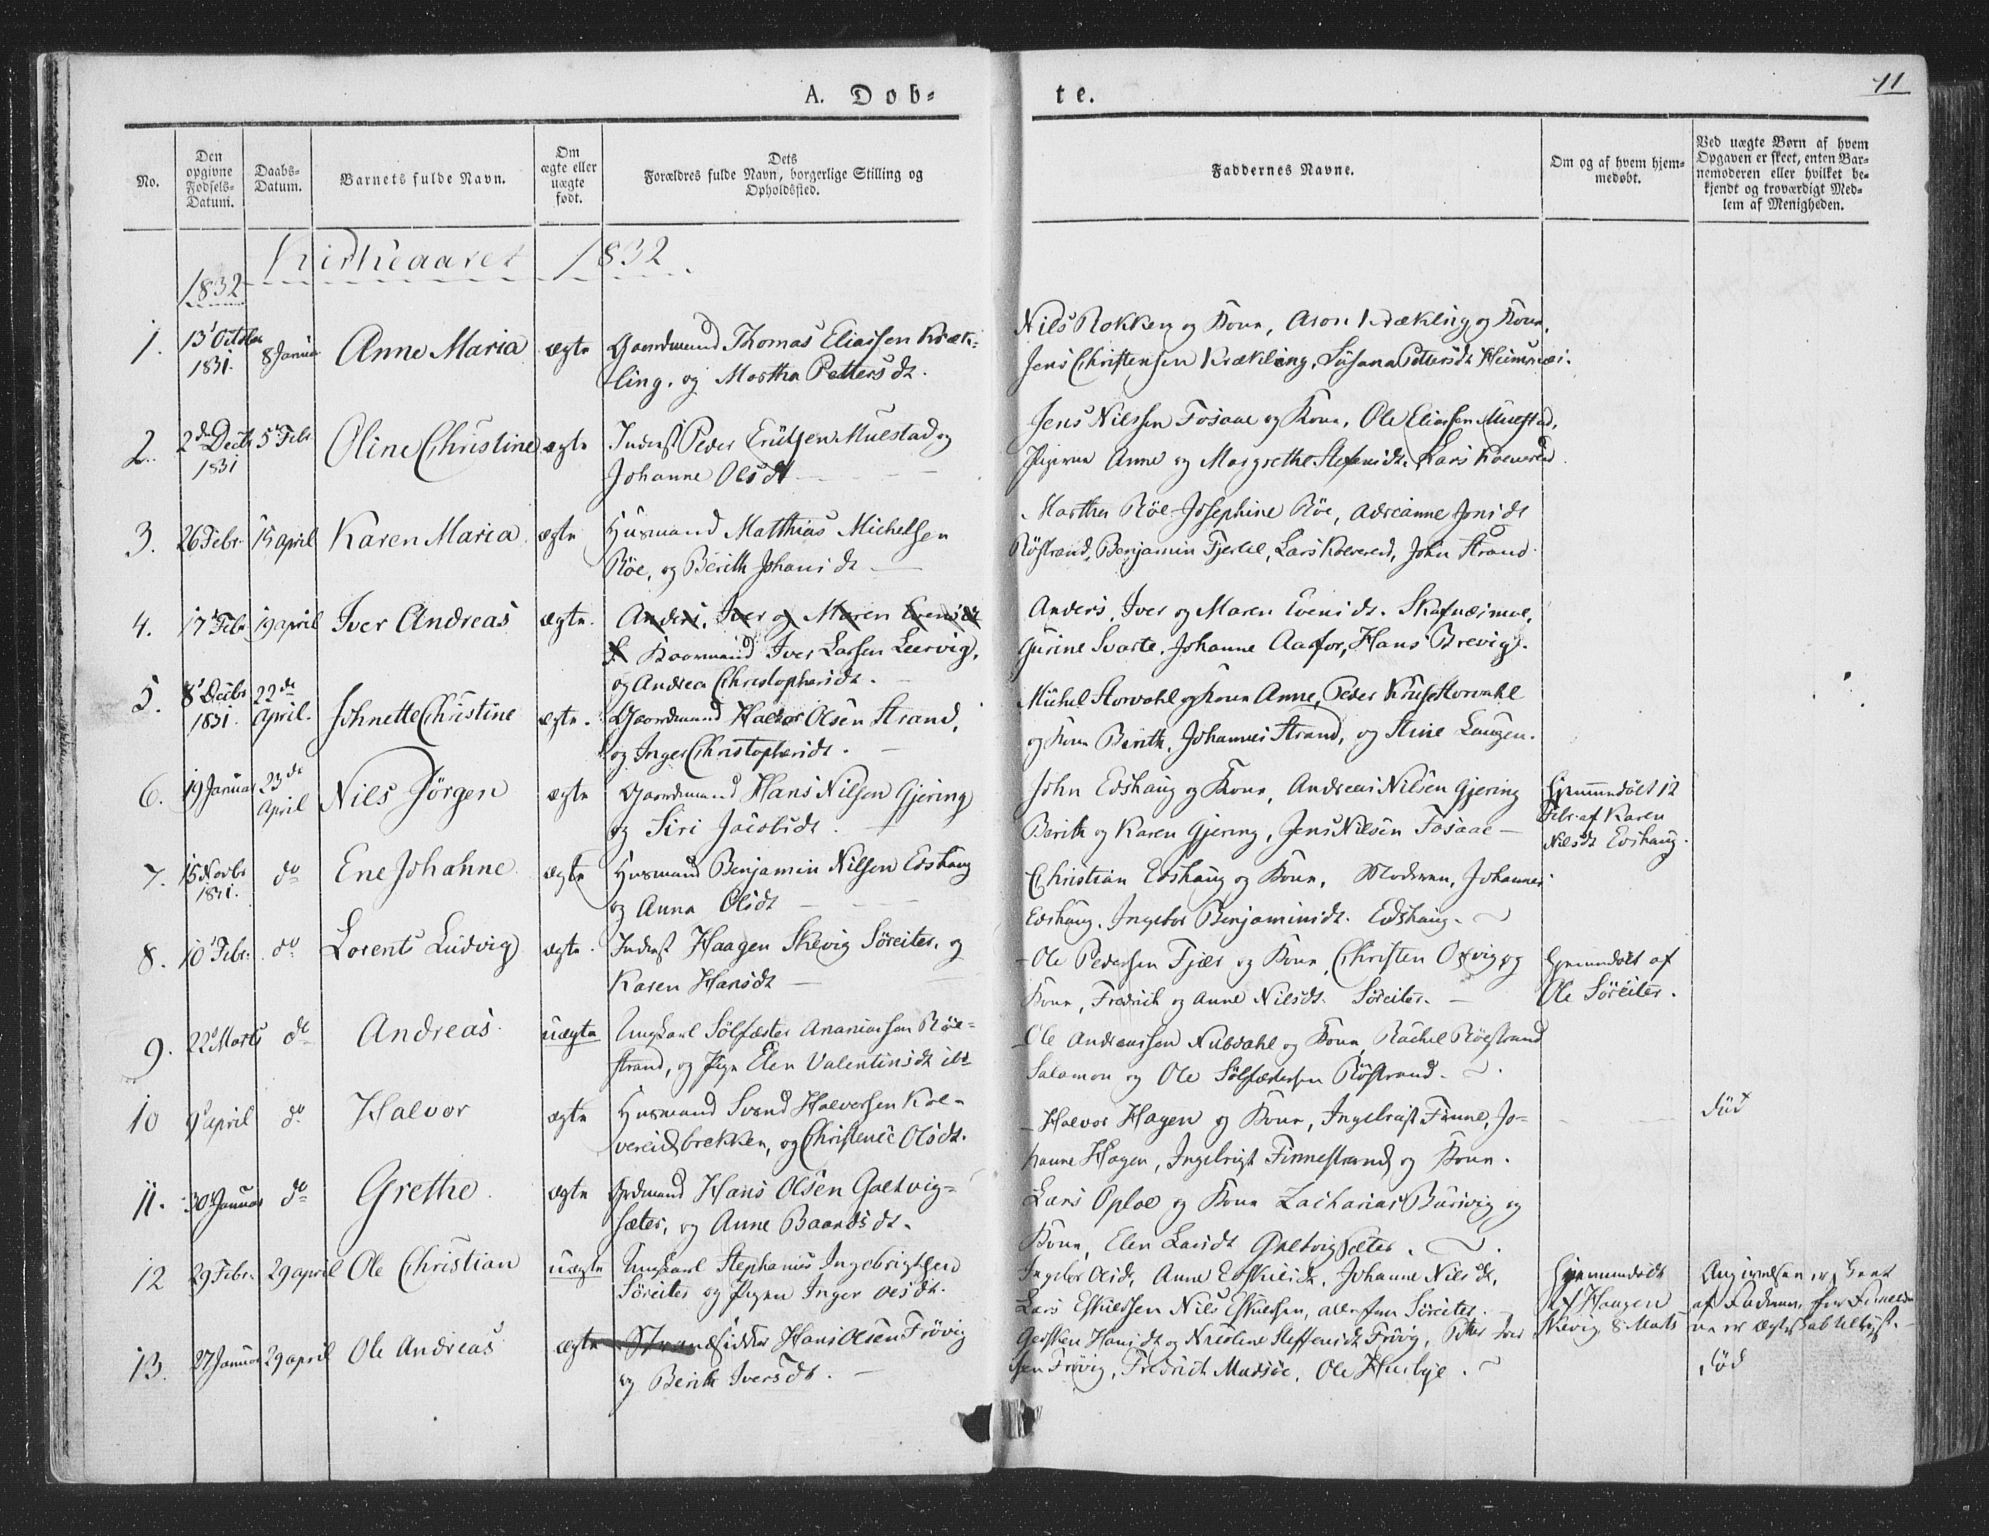 A. Dob-
te.
11
No.
Den opgivne Fødsels-Datum.
Daabs-Datum.
Barnets fulde Navn.
Om ægte eller uægte født.
Dets Forældres fulde Navn, borgerlige Stilling og Opholdssted.
Faddernes Navne.
Om og af hvem hjemmedøbt.
Ved uægte Børn af hvem Opgaven er skeet, enten Barnemoderen eller hvilket bekjendt og troværdigt Medlem af Menigheden.
Kirkeaaret 1832
1832
1. 13 Octbr 1831. 8 Januar Anne Maria ægte Gaardmand Thomas Eliassen Kræk-
ling, og Martha Pettersdt.
Nils Rokken og Kone, Aron Krækling og Kone,
Jens Christensen Krækling, Susana Pettersdt
2. 2d Decbr 1831 5 Febr Oline Christine ægte Inderst Peder Muestad og
Johanne Olsdt
Jens Nilssen Fosaae og Kone, Ole Eliasen Muestad,
Pigerne Anne og Margrethe Stefensdt. Lars
3. 26 Febr. 15 april Karen Maria ægte Husmand Matthias Michelsen
Röe, og Berith Johansdt
Martha Röe Josephine Röe, Adreanne Jonsdt
Röstrand, Benjamin Fjerlil, Lars Kolvereid, John Strand.
4. 17 Febr 19 april Iver Andreas ægte. Anders, Iver og Maren Evensdt
Iver Larsen Leervig,
og Andrea Christophersdt.
Anders, Iver og Maren Evensdt.
Gurine Svarte, Johanne Aarfor, Hans Brevig.
5. 8 Decbr 1831. 22de april. Johnette Christine ægte. Gaardmand Halvor Olsen Strand,
og Inger Christophersdt.
Michel Storvahl og Kone Anne, Peder Kruse Storvahl
og Kone Berith, Johannes Strand, og Stine Laugen.
6. 19 Januar 23de April Nils Jörgen ægte Gaardmand Hans Nilsen Gjering
og Siri Jacobsdt.
John Edshaug og Kone, Andreas Nilsen Gjering
Berith og Karen Gjering, Jens Nilsen Fosaae
Hjemmedöbt 12
Febr. af Karen
Nilsdt Edshaug.
7. 15 Novbr 1831. do Ene Johanne ægte Husmand Benjamin Nilsen Edshaug
og Anna Olsdt
Christian Edshaug og Kone, Moderen, Johannes
Edshaug. Ingebor Benjaminsdt. Edshaug.
8. 10 Febr. do Lorents Ludvig ægte. Inderst Haagen Skevig Söreiter, og
Karen Hansdt
Ole Pedersen Fjær og Kone, Christen Oxvig og
Kone, Fredrik og Anne Nilsdt. Söreiter.
Hjemmedöbt af
Ole Söreiter.
9. 22 Marts do Andreas. uægte Ungkarl Sölfæster Ananiassen Röe-
strand, og Pige Elen Valentinsdt
Ole Andreassen Nubdahl og Kone, Rachel Röestrand
Salamon og Ole Sölfæstersen Röstrand.
10 9 april do. Halvor ægte Husmand Svend Halvorsen Kol-
vereidbrekken, og Christence Olsdt.
Halvor Hagen og Kone, Ingebrigt Finne, Jo-
hanne Hagen, Ingebrigt Finnestrand og Kone.
död
11. 30 Januar do Grethe. ægte Grdmand Hans Olsen Galtvig-
sæter, og Anne Baardsdt.
Lars Oploe og Kone Zacharias Burvig og
Kone, Elen Larsdt Galtvigsæter.
12 29 Febr. 29 april Ole Christian uægte Ungkarl Stephanus Ingebrigtsen
Söreiter og Pigen Inger Olsdt.
Ingebor Olsdt, Anne Eskilsdt, Johanne Nilsdt,
Lars Eskilssen Nils Eskilsen, alle fra Söreiter.
Hjemmedöbt
af Haagen
Skevig 8 Marts
Angivelsen er skeet
af Faderen,
13. 27 Januar 29 april Ole Andreas ægte Strandsidder Hans Olsen Frövig
og Berith Iversdt.
Hansdt og Steffensdt Frövig, Petter Iver
sen Frövig, Fredrik Madsöe, Ole Husbye.
död